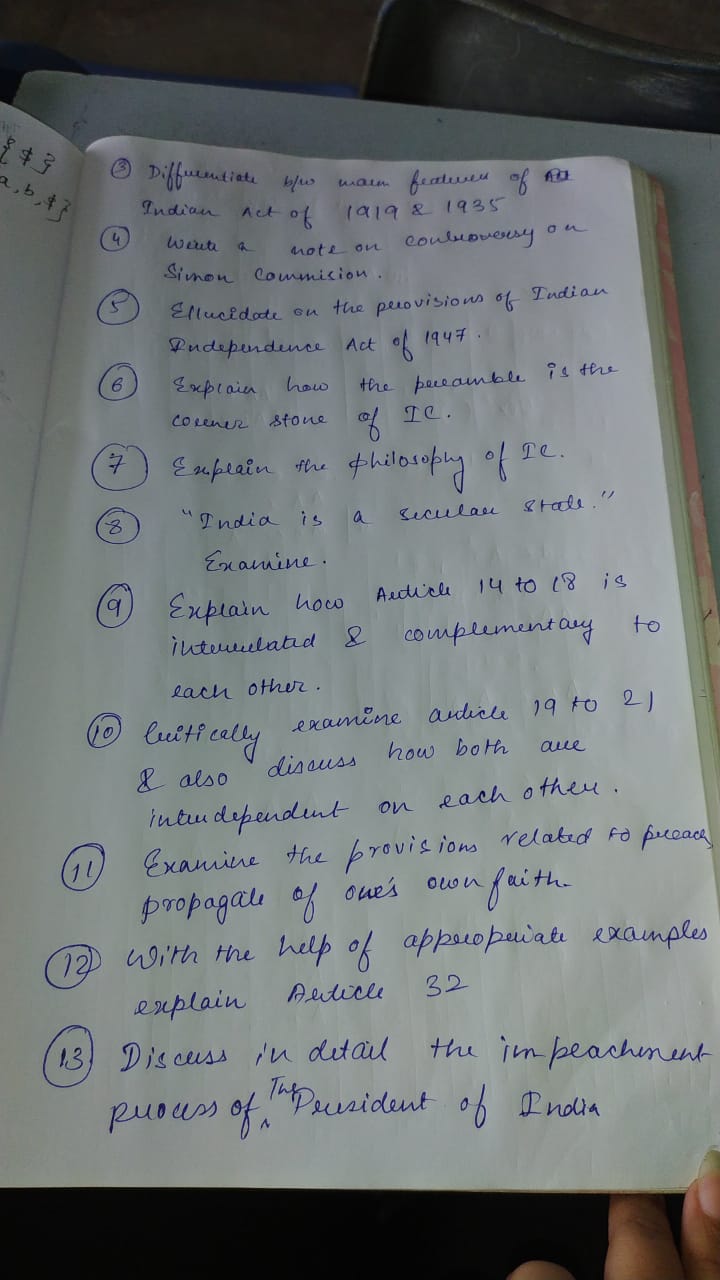 {$}
a, b, $}
③ Differentiate b/w main features of
Indian Act of 1919 & 1935
④ Write a note on controversy on
Simon Commision.
⑤ Ellucidate on the provisions of Indian
Independence Act of 1947.
⑥ Explain how the preamble is the
corner stone of IC.
⑦ Explain the philosophy of IC.
⑧ "India is a secular state."
Examine.
⑨ Explain how Article 14 to 18 is
interrelated & complementary to
each other.
⑩ Critically examine article 19 to 21
& also discuss how both are
interdependent on each other.
⑪ Examine the provisions related to preach,
propagate of one's own faith.
⑫ With the help of appropriate examples
explain Article 32
⑬ Discuss in detail the impeachment
process of The President of India